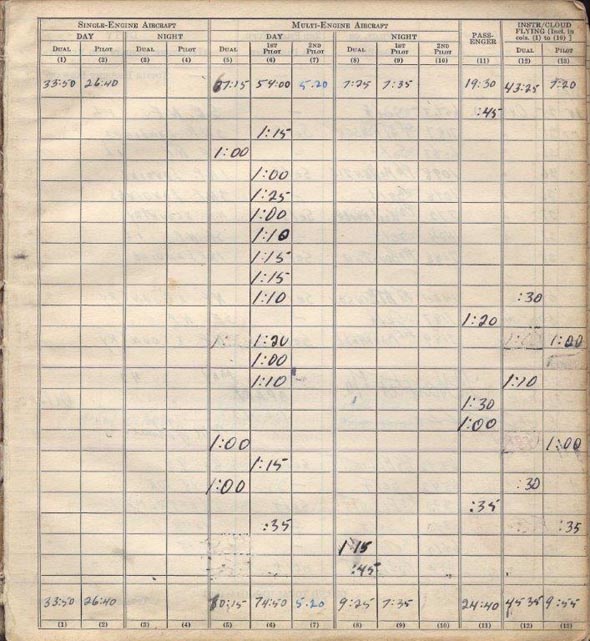 SINGLE-ENGINE AIRCRAFT MULTI-ENGINE AIRCRAFT PASS-ENGER INSTR/CLOUD FLYING [Incl. in cols. (1) to (10) ]
DAY NIGHT DAY NIGHT
DUAL PILOT DUAL PILOT DUAL 1ST PILOT 2ND PILOT DUAL 1ST PILOT 2ND PILOT DUAL PILOT
(1) (2) (3) (4) (5) (6) (7) (8) (9) (10) (11) (12) (13)
33:50 26:40 67:15 54:00 5.20 7:25 7:35 19:30 43:25 7:20
:45
1:15
1:00
1:00
1:25
1:00
1:10
1:15
1:15
1:10 :30
1:20
1:20 1:00
1:00
1:10 1:10
1:30
1:00
1:00 1:00
1:15
1:00 :30
:35
:35 :35
1:15
:45
33:50 26:40 70:15 74:50 5.20 9:25 7:35 24:40 45:35 9:55
(1) (2) (3) (4) (5) (6) (7) (8) (9) (10) (11) (12) (13)